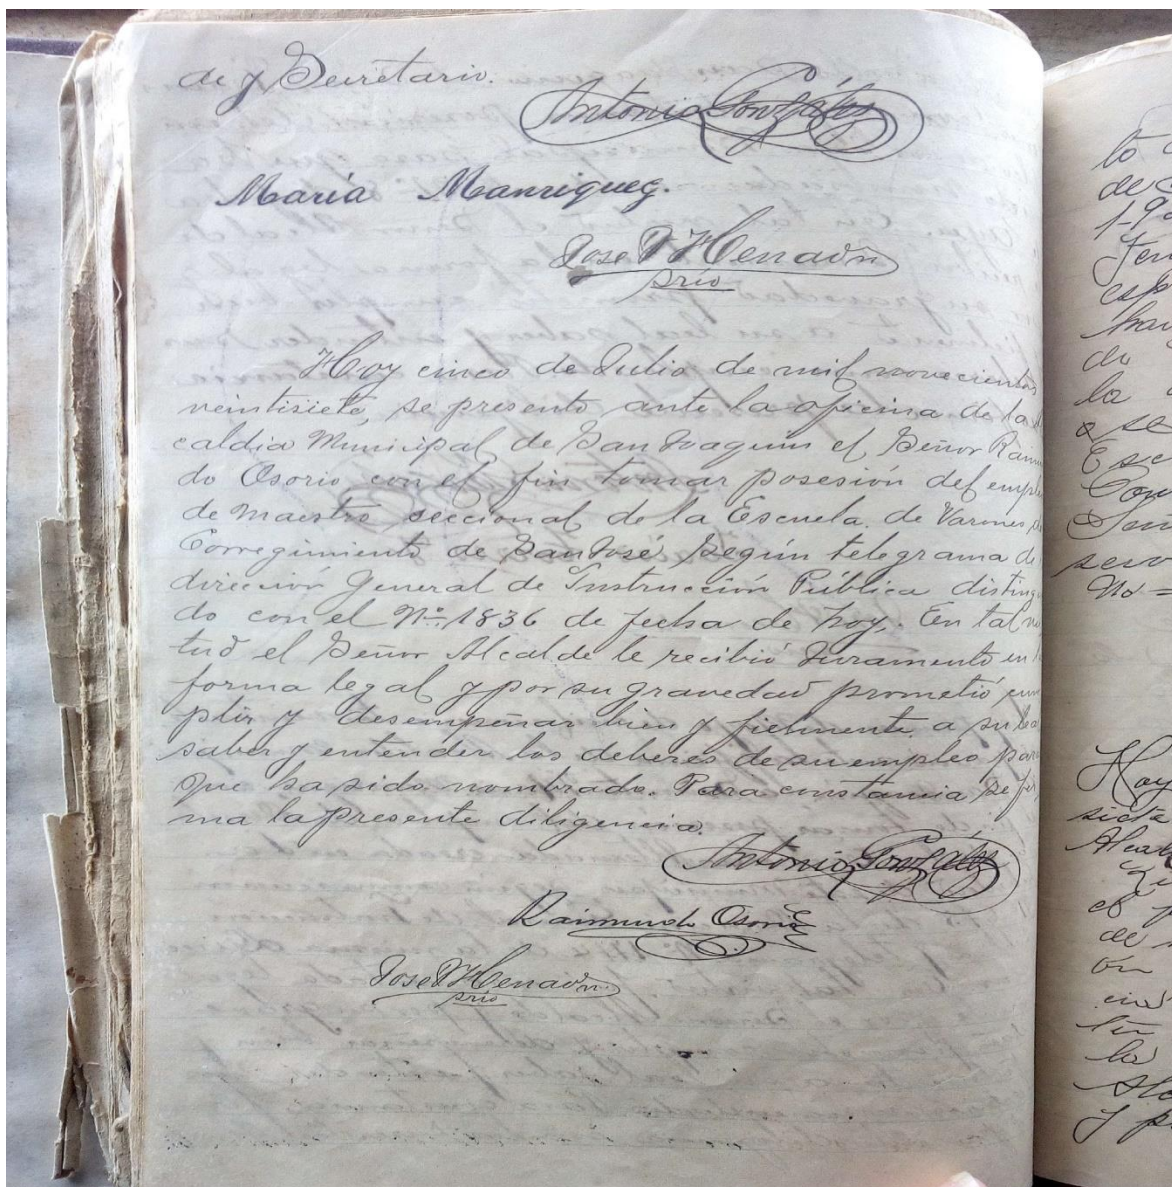 de y Secretario.
Antonio González
María Manriqueg.
Jose
srio
Hoy cinco de Julio de mil novecientos
veintisiete, se presento ante la oficina de la
caldia Municipal de San Joaquin el Señor Raim
do Osorio con el fin tomar posesión del emple
de maestro seccional de la Escuela de Varones
Corregimiento de San José, según telegrama de
dirección General de Instrucción Pública disting
do con el Nº 1836 de fecha de hoy. En tal
tud el Señor Alcalde le recibió Juramento en
forma legal y por su gravedad prometió cum
plir y desempeñar bien y fielmente a su lea
saber y entender los deberes de su empleo para
que ha sido nombrado. Para constancia se fir
ma la presente diligencia.
Antonio González
Raimundo Osorio
Jose
srio
lo
de
Jen
esp
do
la
a se
Esc
Cor
sero
No =
Hoy
siete
Alcal
el
de
ón
la
y p